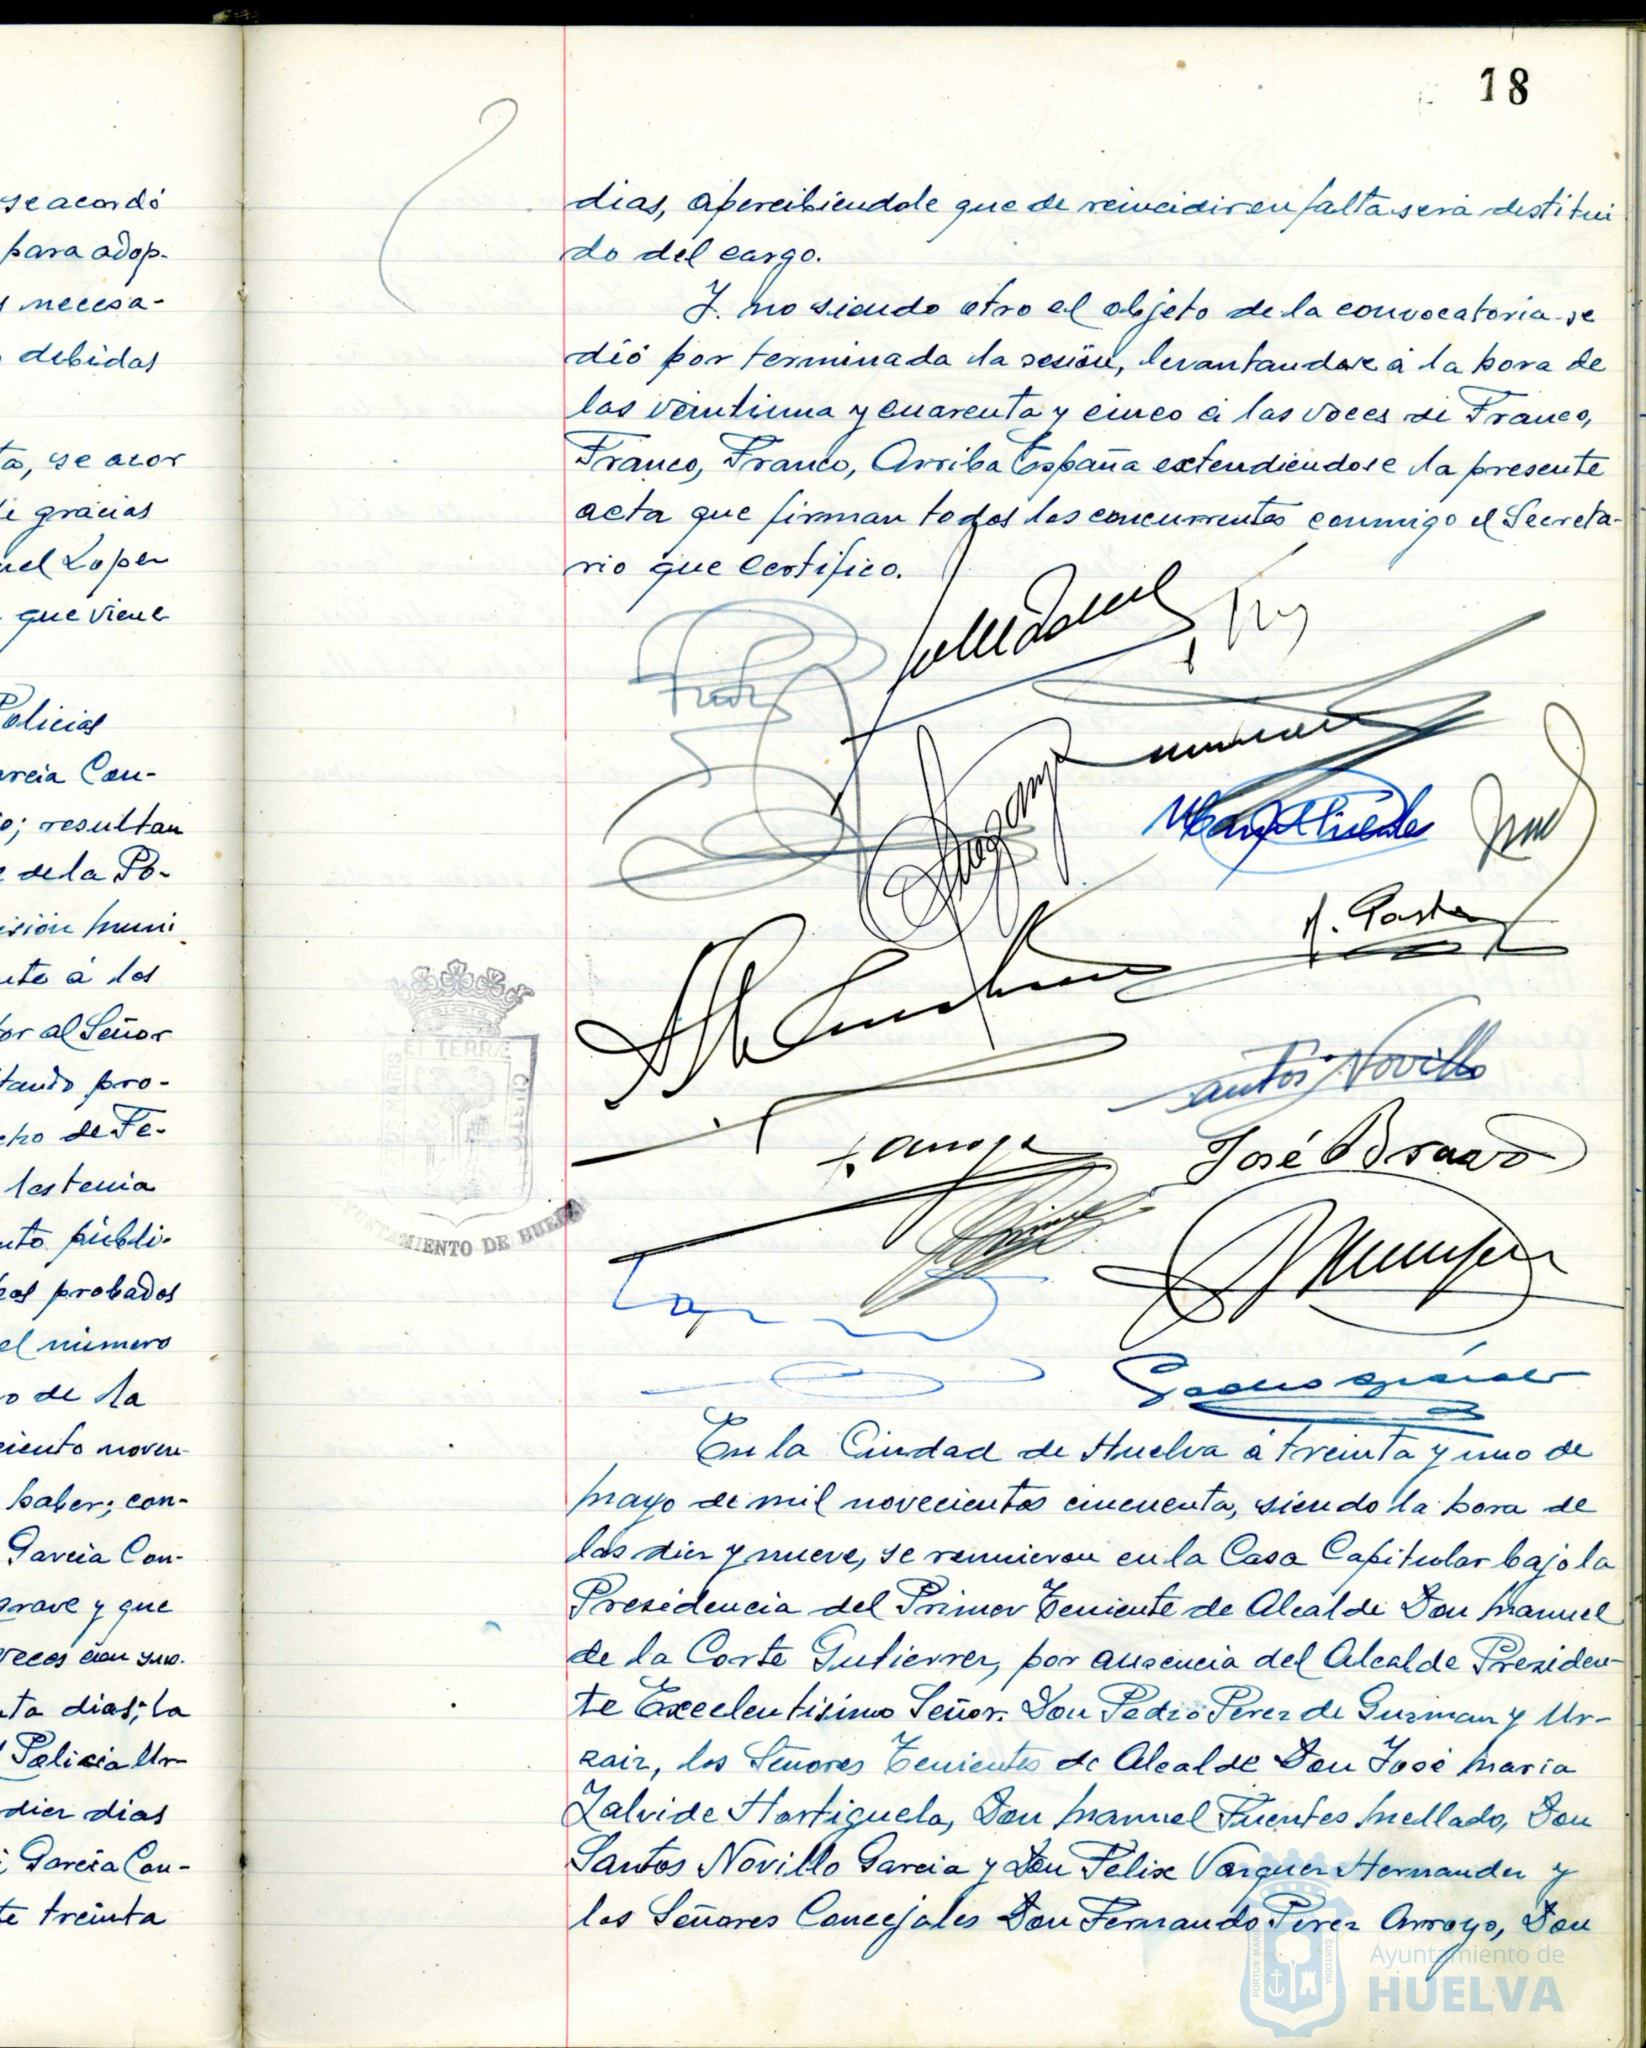 se acordó
para adop-
necesa-
debidas
se acor
gracias
Lopez
que viene
Policias
García Con-
resultan
de la Po-
muni
á los
al Señor
pro-
de Fe-
las tenia
públi-
probados
el número
de la
noven-
haber; con-
Garcia Con-
grave y que
veces con sus.
dias; la
Policia Ur-
diez dias
Garcia Con-
treinta
18
dias, apercibiendole que de reincidir en falta será destitui
do del cargo.
Y. no siendo otro el objeto de la convocatoria se
dió por terminada la sesión, levantandose á la hora de
las veintiuna y cuarenta y cinco á las voces de Franco,
Franco, Franco, Arriba España extendiendose la presente
acta que firman todos los concurrentes conmigo el Secreta-
rio que certifico.
ET TERRÆ
CUSTO
MARIS
YUNTAMIENTO DE HUELVA
Novillo
José Bravo
En la Ciudad de Huelva á treinta y uno de
mayo de mil novecientos cincuenta, siendo la hora de
las diez y nueve, se reunieron en la Casa Capitular bajo la
Presidencia del Primer Teniente de Alcalde Don Manuel
de la Corte Gutierrez, por ausencia del Alcalde Presiden-
te Excelentisimo Señor. Don Pedro Perez de Guzman y Ur-
zaiz, los Señores Tenientes de Alcalde Don José Maria
Zalvide Hortiguela, Don Manuel Fuentes Mellado, Don
Santos Novillo Garcia y Don Felix Vazquez Hernandez y
los Señores Concejales Don Fernando Perez Arroyo, Don
Ayuntamiento de
HUELVA